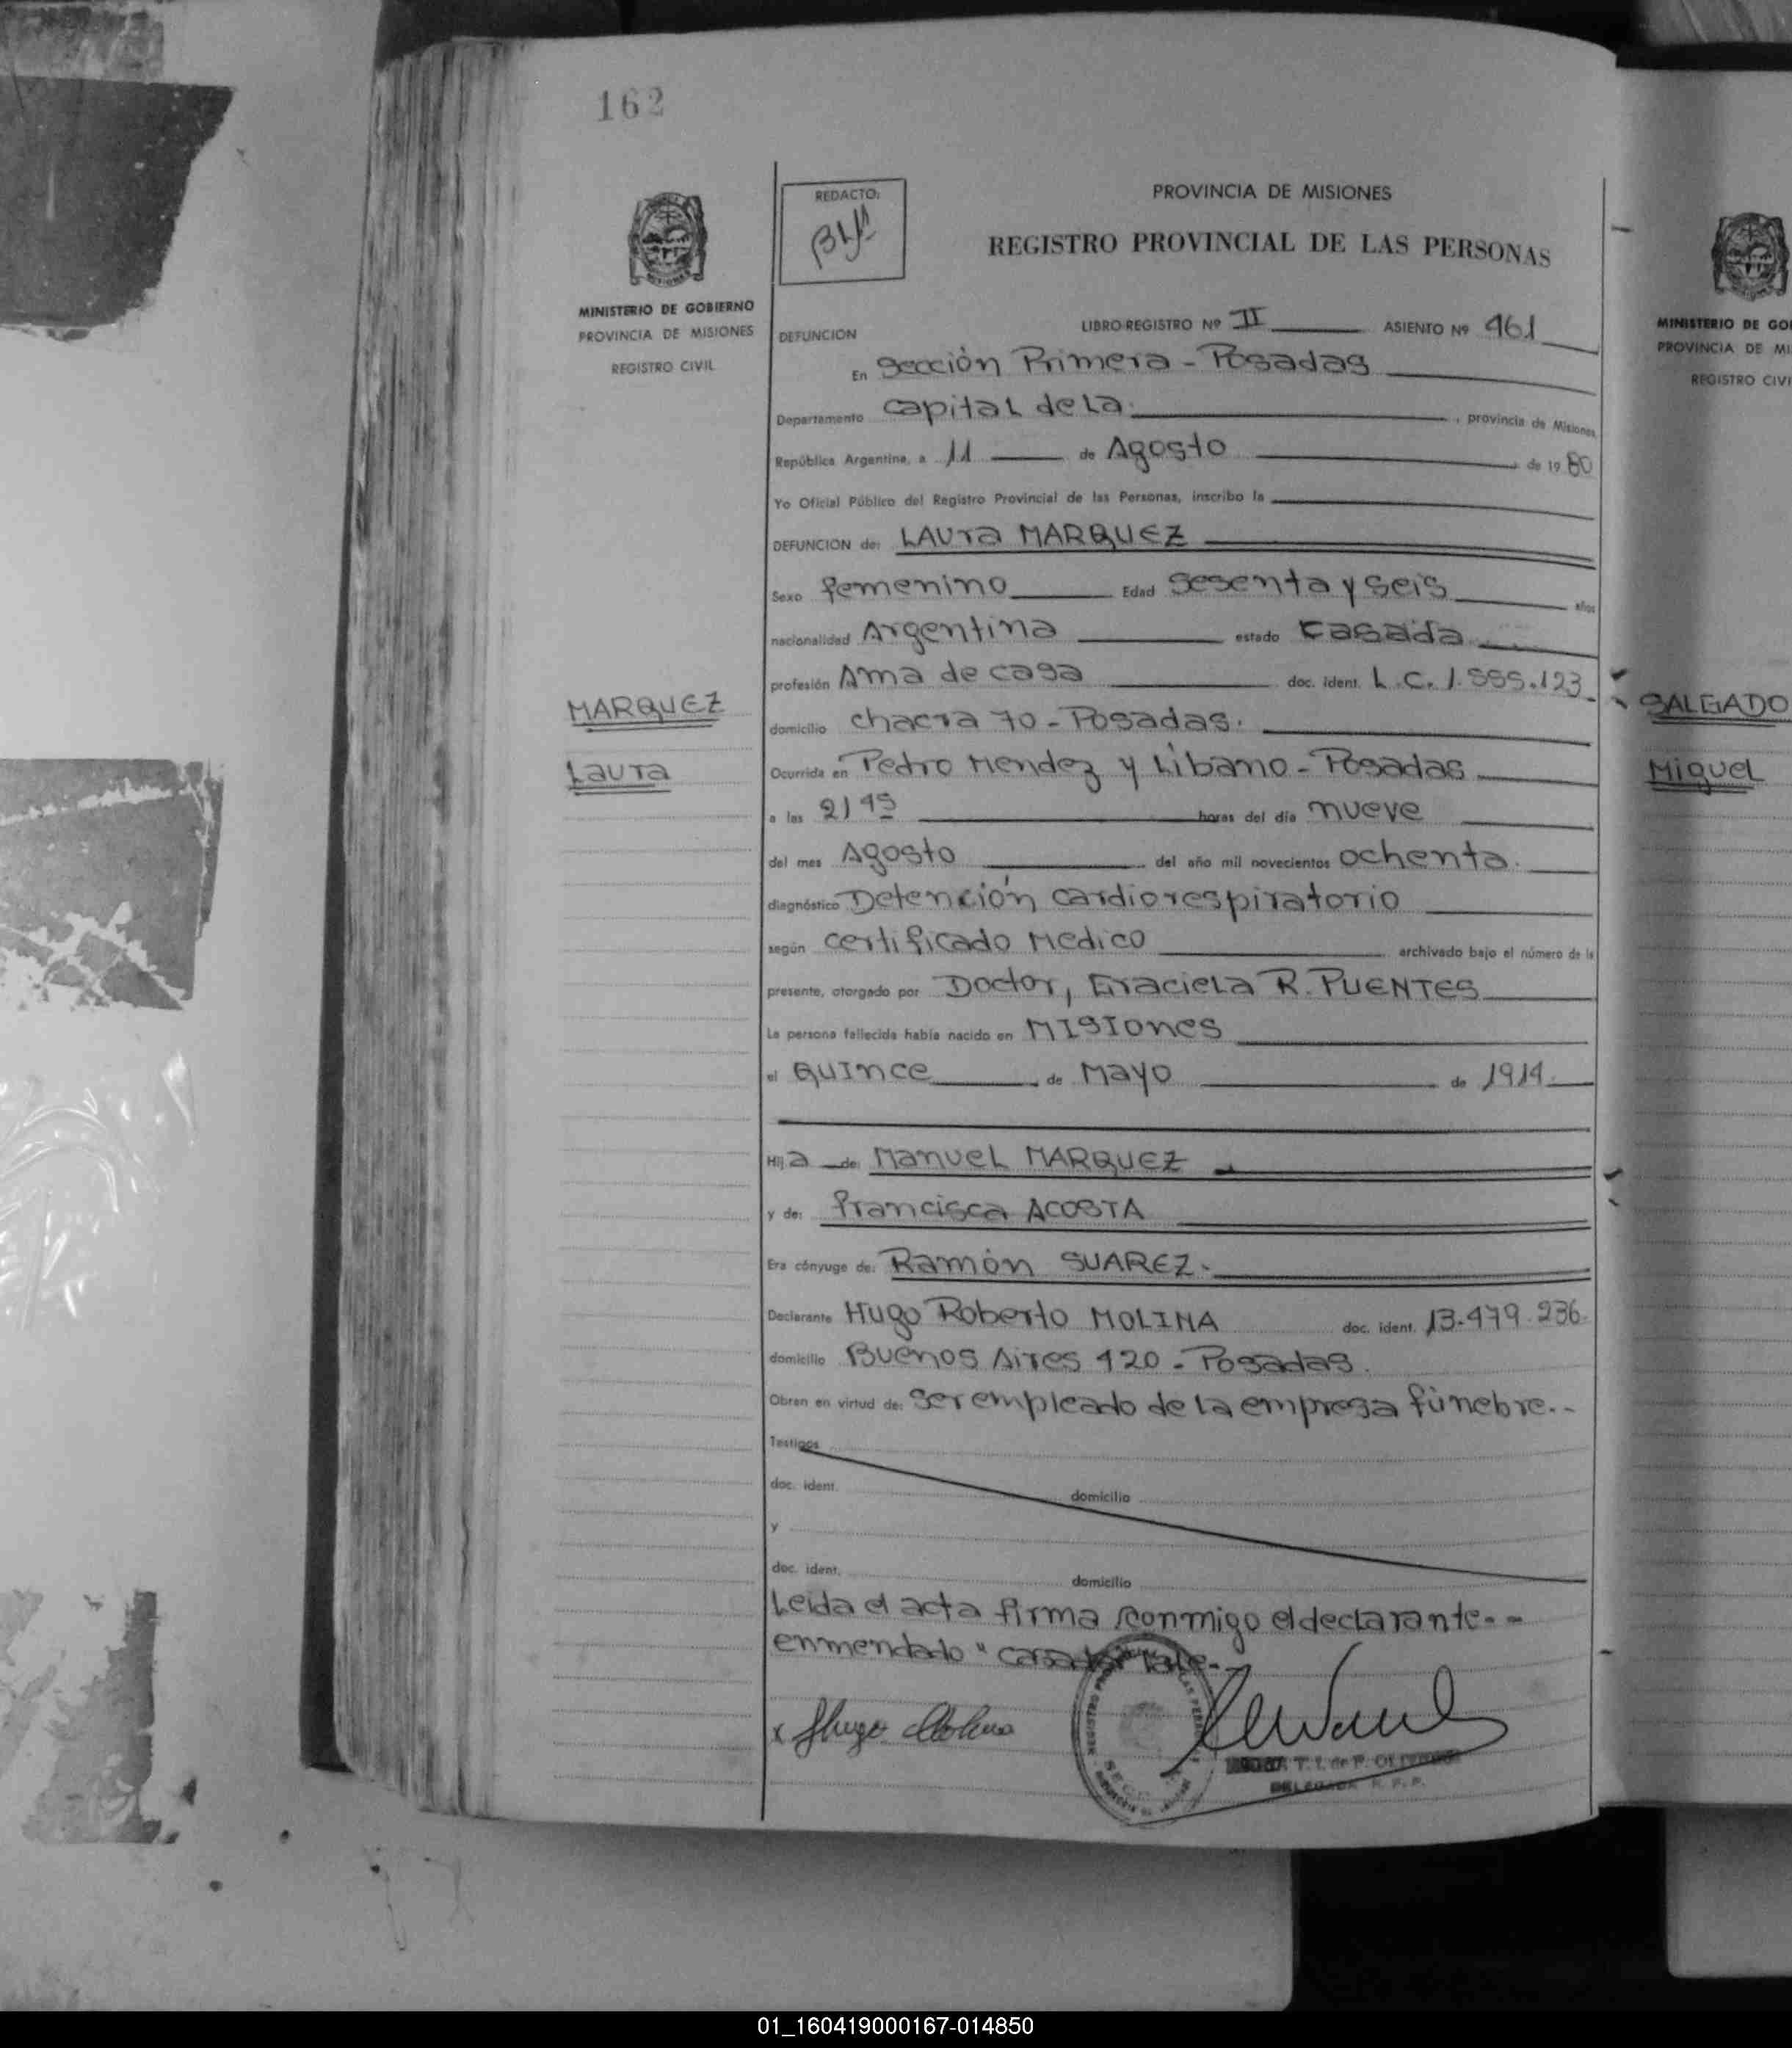 162
REDACTO:
PROVINCIA DE MISIONES
REGISTRO PROVINCIAL DE LAS PERSONAS
MINISTERIO DE GOBIERNO
PROVINCIA DE MISIONES
REGISTRO CIVIL
DEFUNCION LIBRO-REGISTRO Nº II ASIENTO Nº 461
En Sección Primera - Posadas
Departamento Capital de La. , provincia de Misiones
República Argentina, a 11 de Agosto de 1980
Yo Oficial Público del Registro Provincial de las Personas, inscribo la
DEFUNCION de: LAUra MARQUEZ
Sexo femenino Edad Sesenta y Seis años
nacionalidad Argentina estado Casada
profesión Ama de casa doc. ident. L.C. 1.555.123
MARQUEZ
domicilio chacra 70 - Posadas.
Laura
Ocurrida en Pedro Mendez y Líbano - Posadas
a las 21 45 horas del día nueve
del mes Agosto del año mil novecientos ochenta.
diagnóstico Detención cardiorespiratorio
según certificado Medico archivado bajo el número de la
presente, otorgado por Doctor, Graciela R. PUENTES
La persona fallecida había nacido en MISIONES
el QUINCE de Mayo de 1914.
Hija de: Manuel MARQUEZ
y de: francisca ACOSTA
Era cónyuge de: Ramón SUAREZ.
Declarante Hugo Roberto MOLINA doc. ident. 13.479.236
domicilio Buenos Aires 420 - Posadas.
Obran en virtud de: ser empleado de la empresa fúnebre.-
Testigos
doc. ident. domicilio
y
doc. ident. domicilio
Leida el acta firma conmigo el declarante.-
enmendado "casada" Vale.-
x Hugo Molina
DELEGADA R. P. P.
MINISTERIO DE GO
PROVINCIA DE MI
REGISTRO CIVI
SALGADO
Miguel
01_160419000167-014850